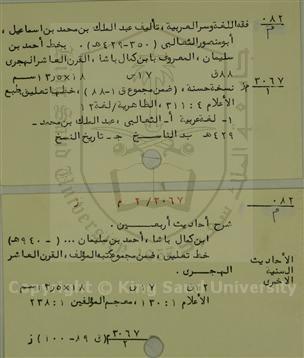 ٠٨٢
م
فقه اللغة وسر العربية، تأليف عبد الملك بن محمد بن اسماعيل،
أبو منصور الثعالبي (٣٥٠-٤٢٩هـ). بخط أحمد بن
سليمان، المعروف بابن كمال باشا، القرن العاشر الهجري
٨٨ق ١٧س ١٨×١٣٫٥سم
٣٠٦٧
١
نسخة حسنة، (ضمن مجموع ق ١-٨٨)، خطها تعليق، طبع
الأعلام ٤: ٣١١، الظاهرية/لغة ١٢
١- لغة عربية أ- الثعالبي، عبد الملك بن محمد-
٤٢٩هـ ب- الناسخ ج- تاريخ النسخ
٣٠٦٧/٢ م ز
٠٨٢
م
شرح أحاديث أربعين.
ابن كمال باشا، أحمد بن سليمان ... (-٩٤٠هـ)
خط تعليق، ضمن مجموع كتبه المؤلف، القرن العاشر
الهجري.
الأحاديث
السنية
الأخرى
ق ١٧س ١٨×١٣٫٥سم
الأعلام ١: ١٣٠، معجم المؤلفين ١: ٢٣٨
٣٠٦٧
٢
(ق ٨٩-١٠٠) ز
Copyright © King Saud University